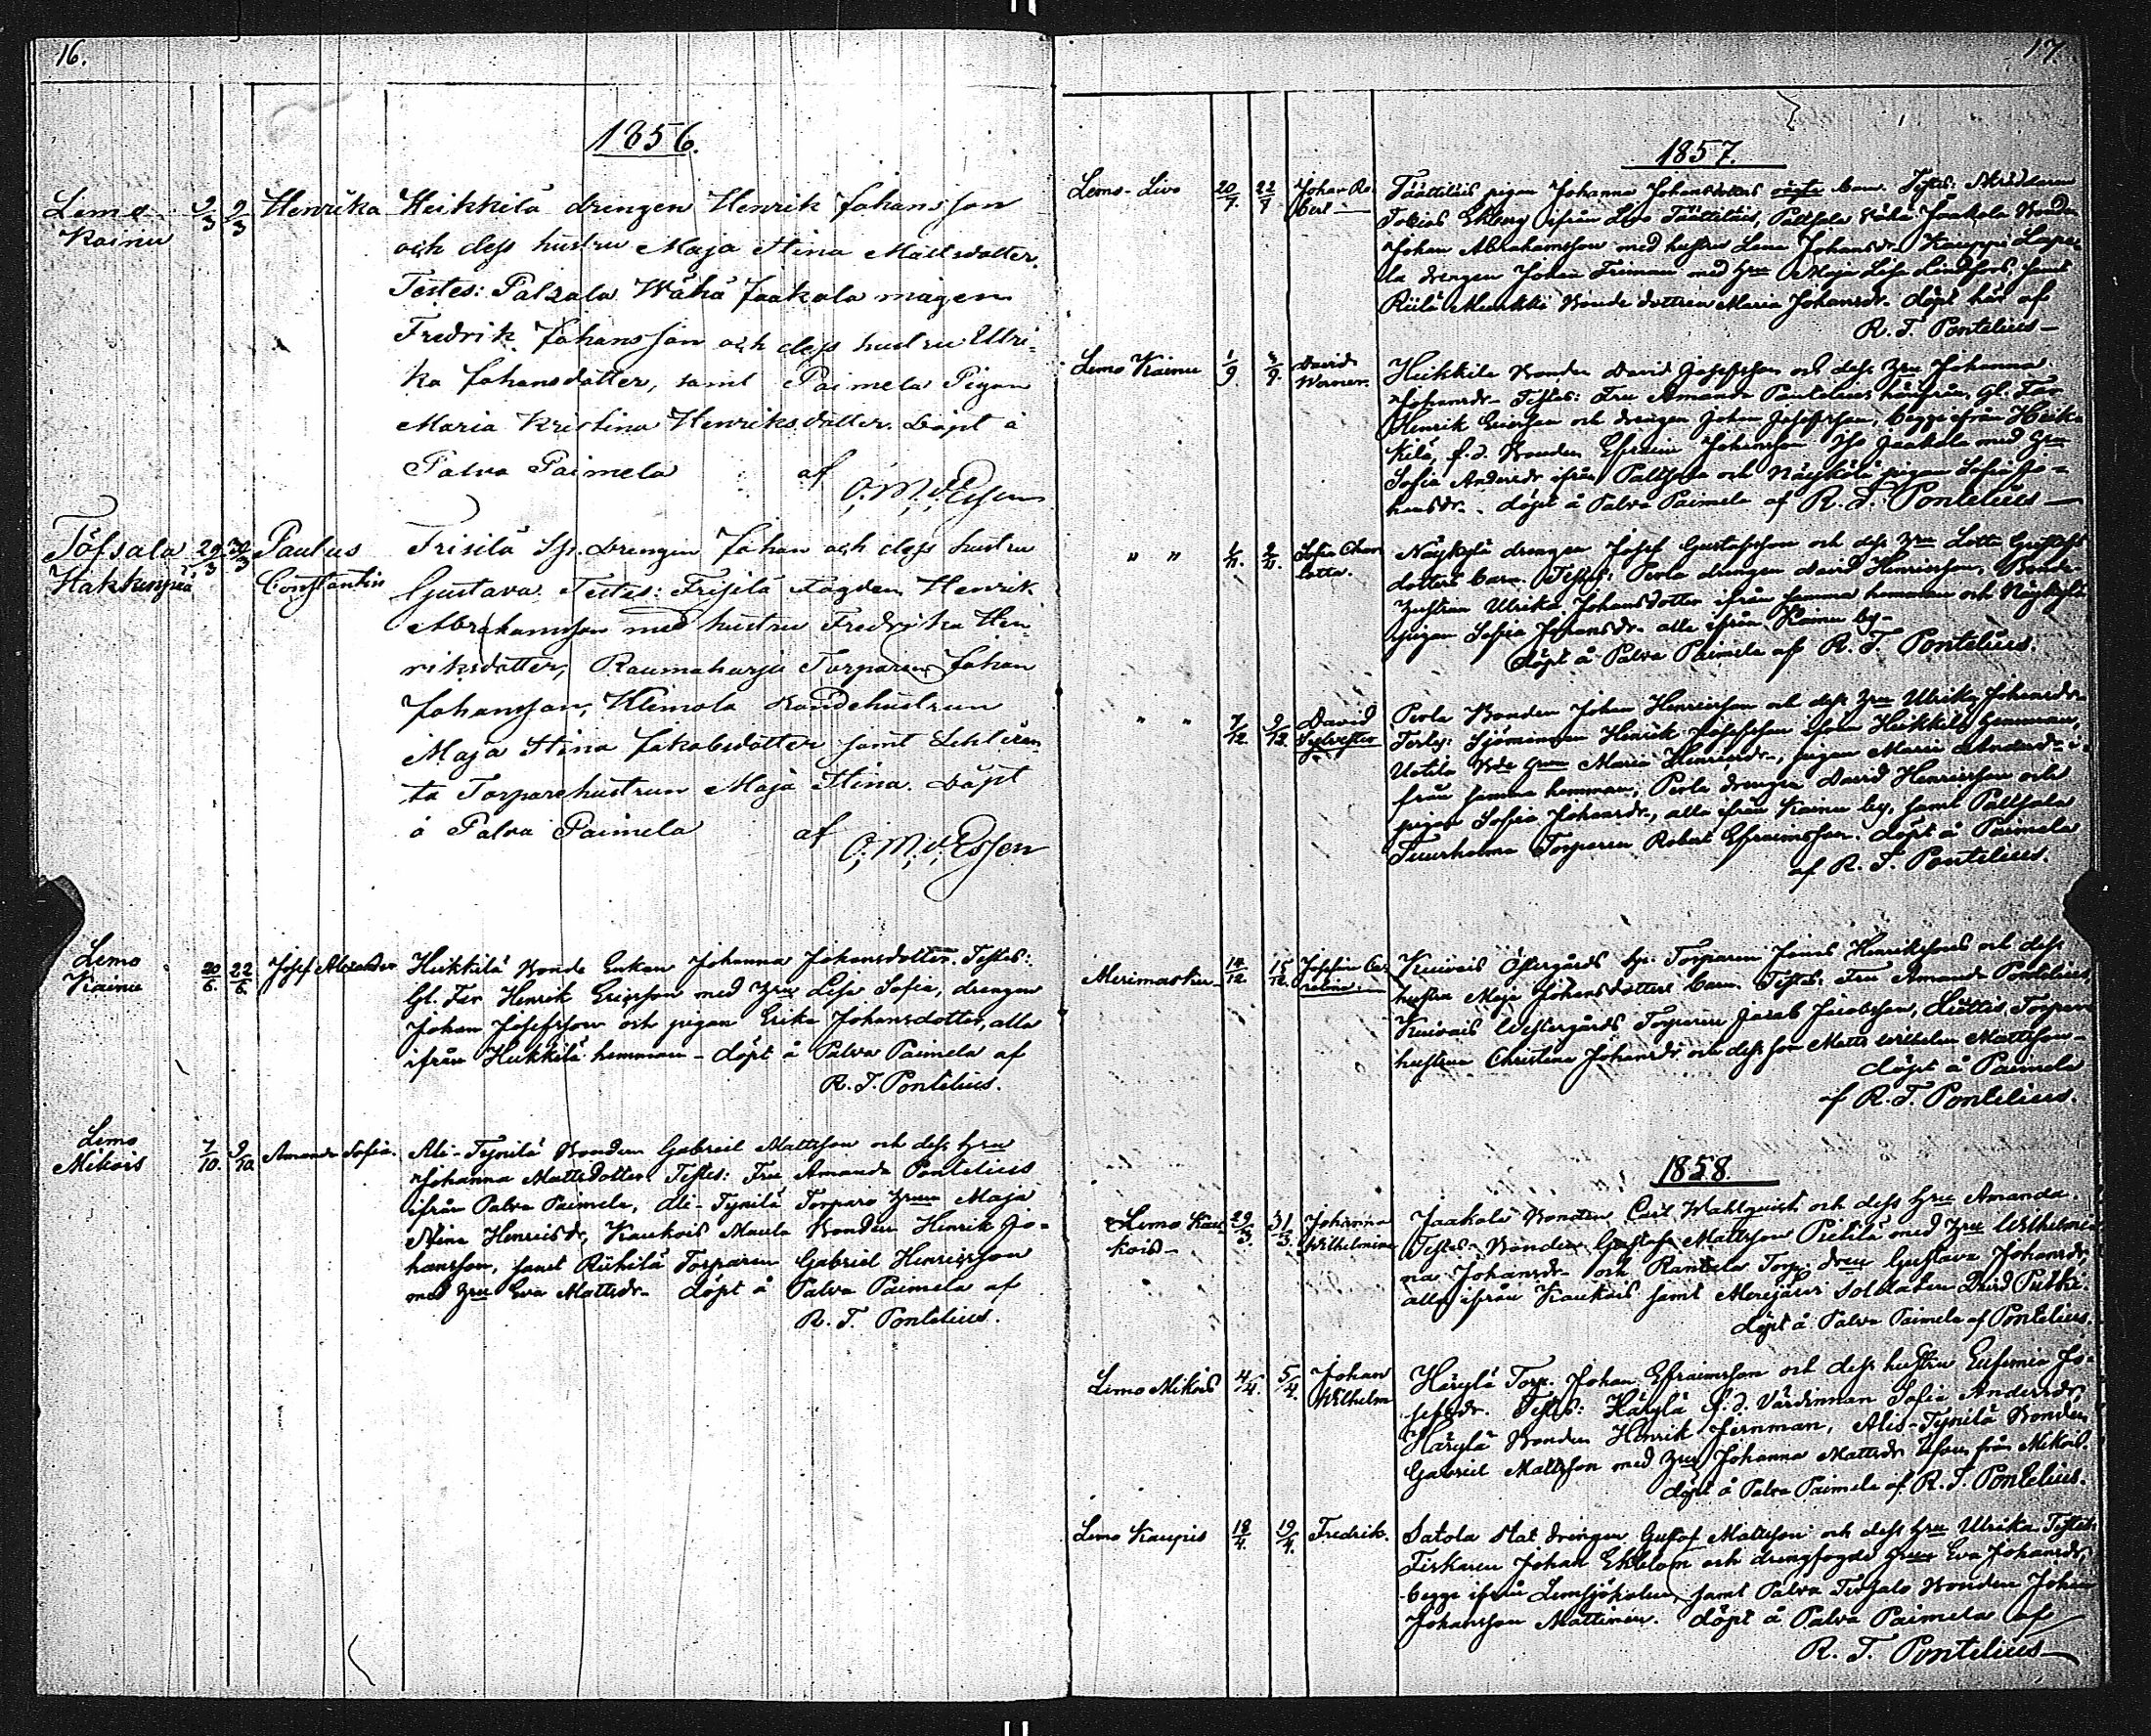 16.
1856.
Lemo Kainu 9/3 9/3 Henrika Heikkilä drengen Henrik Johansson
och dess hustru Maja Stina Mattsdotter.
Testes: Palsala Wähä Jaakola mågen
Fredrik Johansson och dess hustru Ulri-
ka Johansdotter, samt Paimela Pigan
Maria Kristina Henriksdotter. Döpt å
Palva Paimela af
O. M. v. Essen
Töfsala Hakkenpää 29/3 30/3 Paulus Constantin Frisilä Sp. Drengen Johan och dess hustru
Gustava. Testes: Frisilä Fogden Henrik
Abrahamsson med hustru Fredrika Hen-
riksdotter, Raumaharju Torparen Johan
Johansson, Klemola Bondehustrun
Maja Stina Jakobsdotter samt
ta Torparehustrun Maja Stina. Döpt
å Palva Paimela af
O. M. v. Essen
Lemo Kainu 20/6. 22/6. Josef Alexander Heikkilä Bonde Enkan Johanna Johansdotter. Testes:
Gl. Far Henrik Ericsson med Hru Lisa Sofia, drengen
Johan Josefsson och pigan Erika Johansdotter, alla
ifrån Heikkilä hemman - döpt å Palva Paimela af
R. T. Pontelius.
Lemo Mikois 7/10. 9/10 Amanda Sofia. Ali-Tynilä Bonden Gabriel Mattsson och dess hru
Johanna Mattsdotter. Testes: Fru Amanda Pontelius
ifrån Palva Paimela, Ali-Tynilä Torpare Hrun Maja
Stina Henricsdr, Kaukois Maula Bonden Henrik Jo-
hansson, samt Riihilä Torparen Gabriel Henricsson
med Hru Eva Mattsdr- döpt å Palva Paimela af
R. T. Pontelius.
17.
1857.
Lemo-Livo 20/7. 22/7 Johan Ro-bert — Täättiläis pigan Johanna Johansdotters oägta barn. Testes: Skräddaren
Tobias Ekberg ifrån Livo Täättiläis, Paltsala Wähä Jaakola Bonden
Johan Abrahamsson med hustru Lena Johansdr. Kauppi Lape-
la drengen Johan Friman med hru Maja Lisa Lindfors, samt
Riilä Munkki Bonde dottren Maria Johansdr. döpt här af
R. T. Pontelius —
Lemo Kainu 1/9. 3/9. David Werner. Heikkilä Bonden David Josefsson och dess Hru Johanna
Johansdr- Testes: Fru Amanda Pontelius härifrån, Gl. Far
Henrik Ericsson och drengen Johan Josefsson, begge ifrån Heik-
kilä, f.d. Bonden Efraim Johansson Iso Jaakola med Hru
Sofia Andersdr ifrån Paltsala och Näykylä pigan Sofia Jo-
hansdr. döpt å Palva Paimela af R. T. Pontelius —
" " Sofia Char-lotta. Näykylä drengen Josef Gustafsson och dess Hru Lotta Gustafs-
dotters barn. Testes: Perla drengen David Henricsson, Bonde-
hustrun Ulrika Johansdotter ifrån samma hemman och Näykylä
pigan Sofia Johansdr- alla ifrån Kainu by-
döpt å Palva Paimela af R. T. Pontelius.
" " 7/12. 9/12. David Sylvester Perla Bonden Johan Henricsson och dess Hru Ulrika Johansdr
Testes: Sjömannen Henrik Josefsson ifrån Heikkilä hemman,
Uotila Bde Hrun Maria Henricsdr-, pigan Maria Andersdr- i-
från samma hemman; Perla drengen David Henricsson och
pigan Sofia Johansdr., alla ifrån Kainu by, samt Paltsala
Tuurholma Torparen Robert Efraimsson. döpt å Paimela
af R. T. Pontelius.
Merimasku- 14/12. 15/12. Josefina Ca-rolina. Kuivais Östergårds Sp. Torparen Jonas Henrikssons och dess
hustru Maja Johansdotters barn. Testes: Fru Amanda Pontelius,
Kuivais Westergårds Torparen Jacob Jacobsson, Luottis Torpare
hustrun Christina Johansdr och dess son Matts Wilhelm Mattsson-
döpt å Paimela
af R. T. Pontelius.
1858.
Lemo Kau-kois- 29/3. 31/3. Johanna Wilhelmina Jaakola Bonden Carl Wahlqvist och dess hru Amanda.
Testes- Bonden Gustaf Mattsson Pietilä med Hru Wilhelmi-
na Johansdr- och Rantala Torp. Hrun Gustava Johansdr,
alla ifrån Kaukois samt Merijärvi Soldaten David Putki.
döpt å Palva Paimela af Pontelius.
Lemo Mikois 4/4. 5/4. Johan Wilhelm Härylä Torp. Johan Efraimsson och dess hustru Eufemia Jo-
sefsdr. Testes: Härylä f.d. Värdinnan Sofia Andersdr,
Härylä Bonden Henrik Jernman, Alis-Tynilä Bonden
Gabriel Mattsson med Hru Johanna Mattsdr från Mikois.
döpt å Palva Paimela af R. T. Pontelius.
Lemo Kaupis 18/4. 19/4. Fredrik. Satola Stat drengen Gustaf Mattsson och dess hru Ulrika. Testes:
Fiskaren Johan Ekblom och drengfogde hrun Eva Johansdr,
begge ifrån Lemsjöholm, samt Palva Tersalo Bonden Johan
Johansson Mattinen. döpt å Palva Paimela af
R. T. Pontelius —